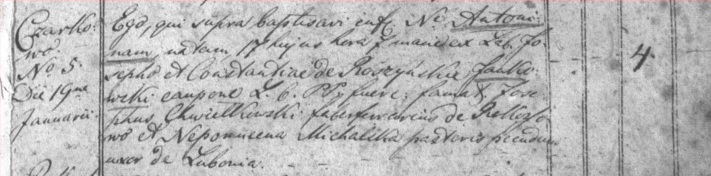 Czarko-
wo
No 5.
Die 19na
Januarii.
Ego, qui supra baptisavi inf. Ne Antoni-
nam natam 17 hujus hora 7 mane ex Lab. Jo-
sepho et Constantiae de Roszyńskie Janko-
wski caupone L. C. PP. fuere; famat. Jose-
phus Chwiełkowski faber ferrarius de
wo et Nepomucena Michalska pastoris pecudum
uxor de Lubonia.
4.